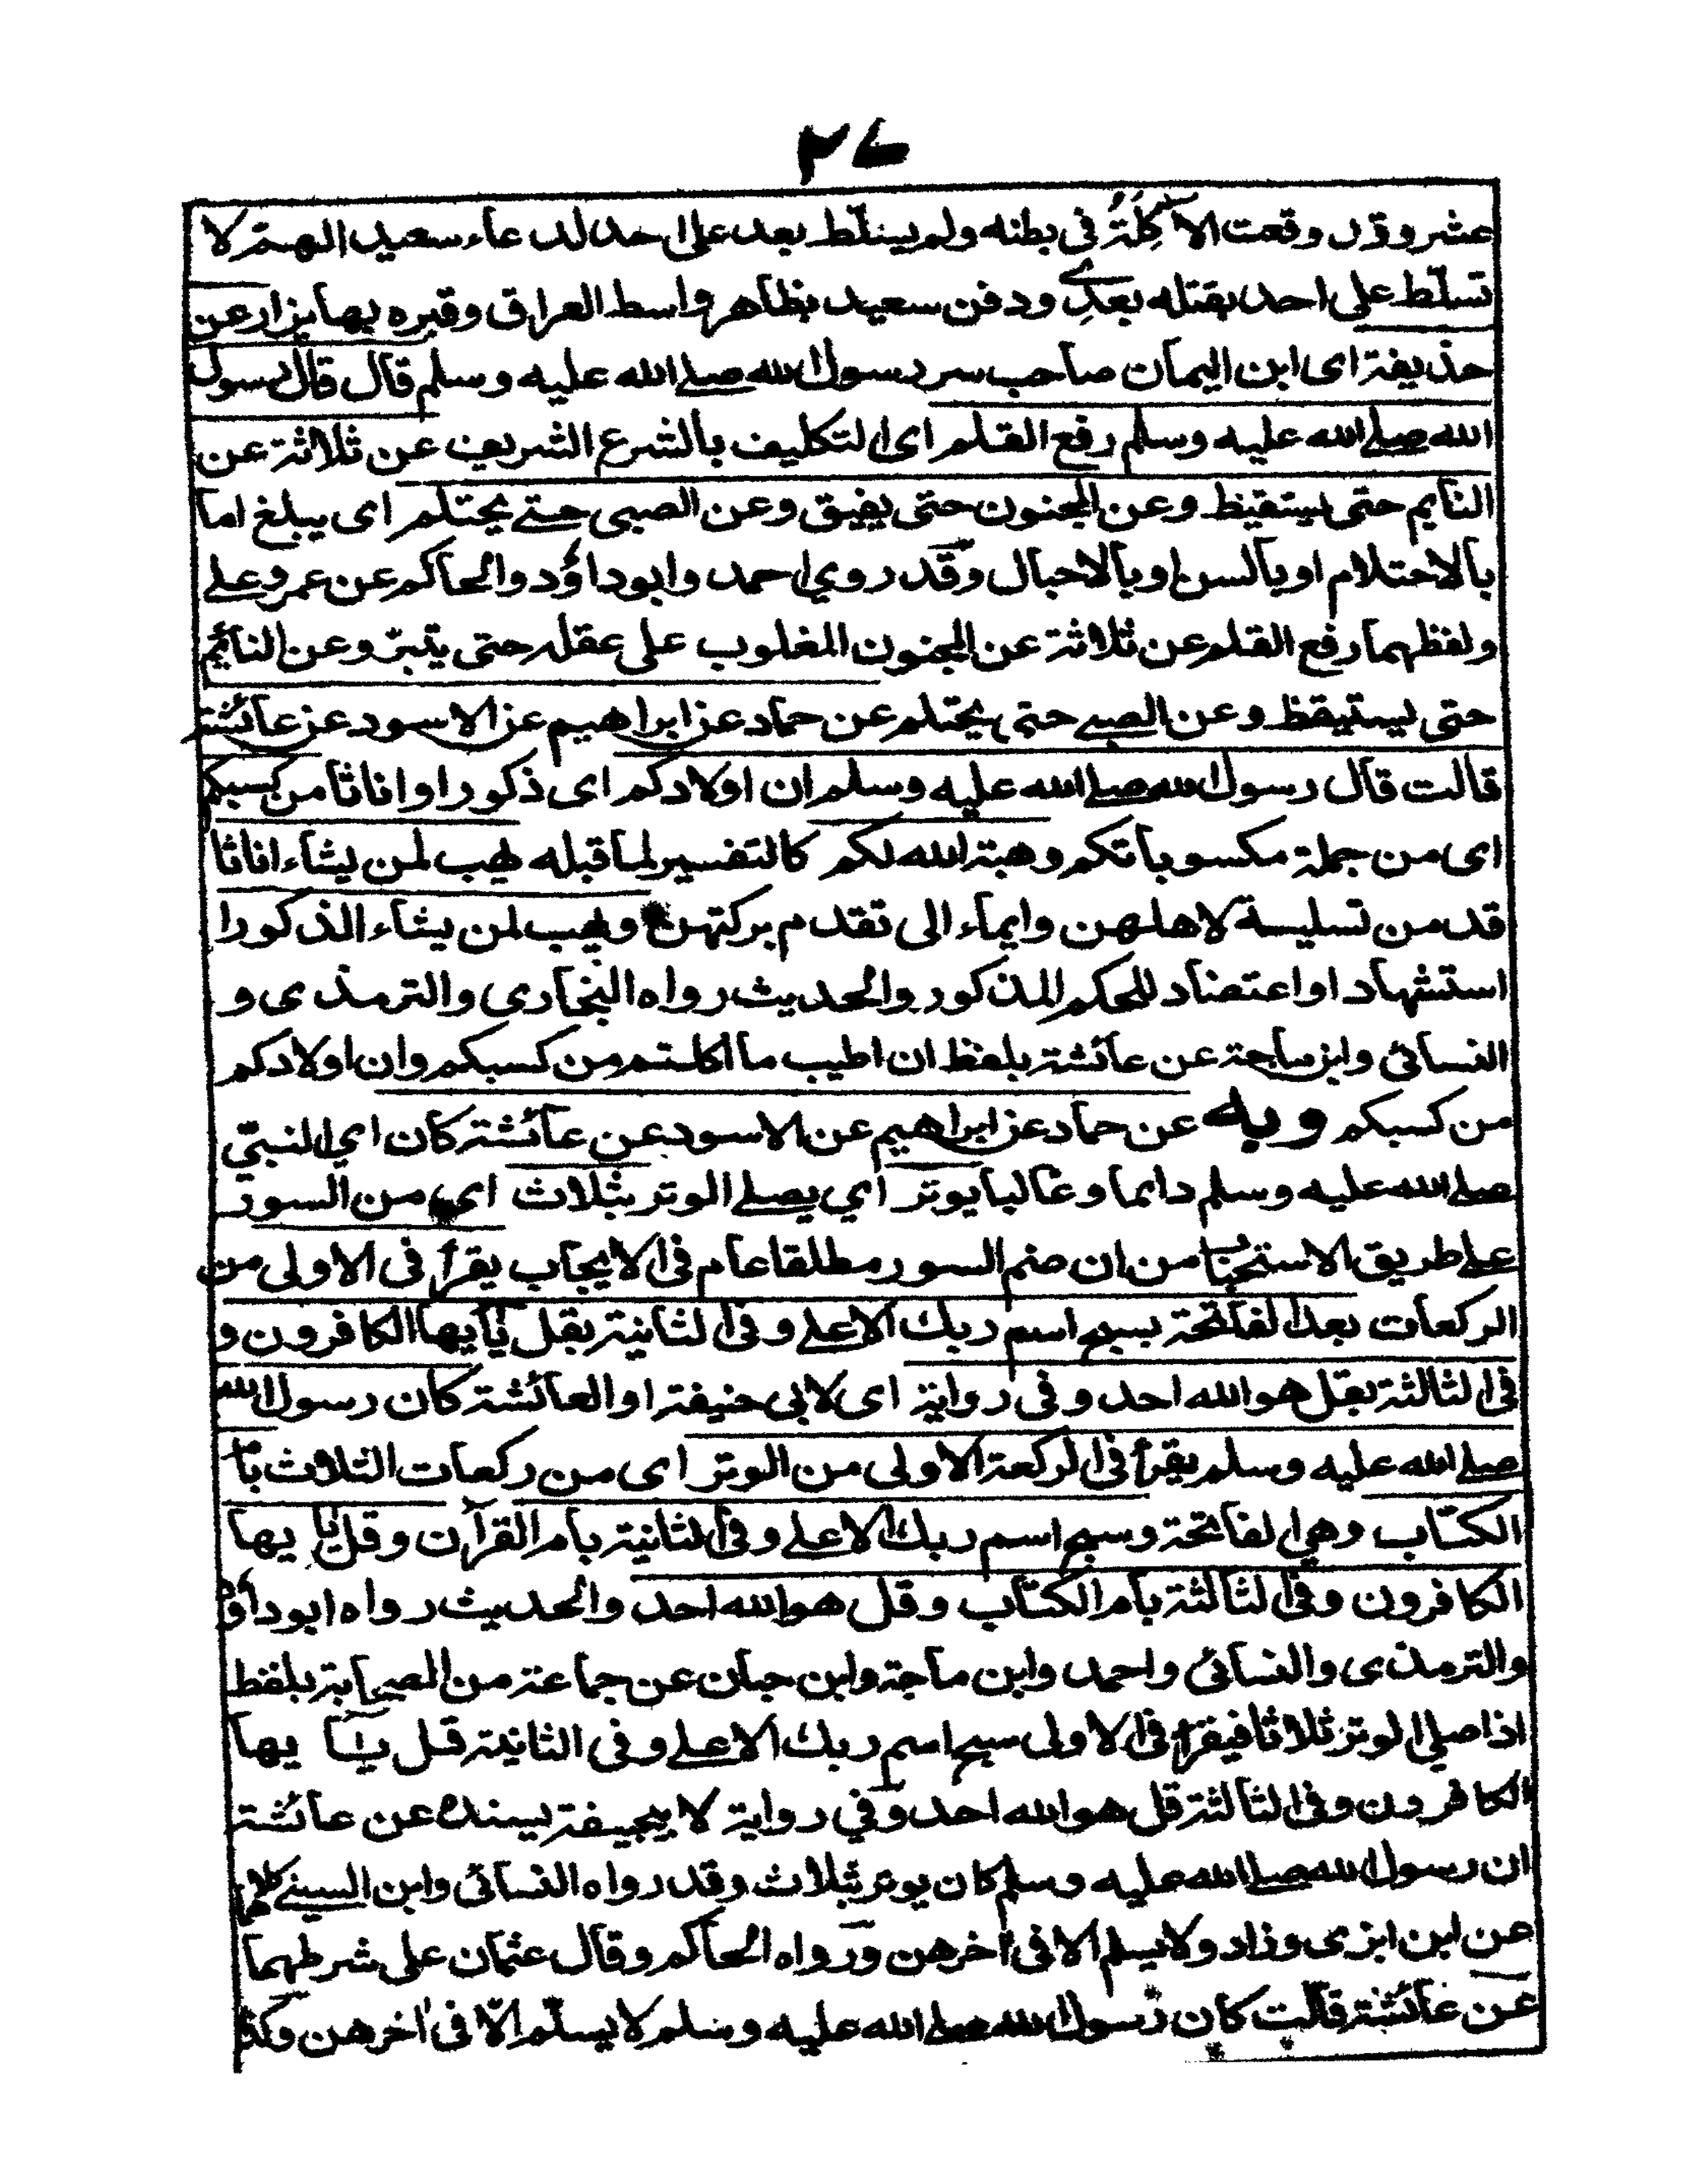 ٢٤
عشر وقد وقعت الاَكِلَةُ فى بطنه ولم يسلّط بعد على احد لدعاء سعيد اللهمّ لا
تسلّط على احد بقتله بعدِى ودفن سعيد بظاهر واسط العراق وقبره بها يزار عن
حذيفة اى ابن اليمان صاحب سر رسول الله صلى الله عليه وسلم قال قال رسول
الله صلى الله عليه وسلم رفع القلم اى التكليف بالشرع الشريف عن ثلاثة عن
النايم حتى يستقيظ وعن المجنون حتى يفيق وعن الصبى حتى يحتلم اى يبلغ اما
بالاحتلام او بالسن او بالاحبال وقد روى احمد وابوداؤد والحاكم عن عمر وعلى
ولفظهما رفع القلم عن ثلاثة عن المجنون المغلوب على عقله حتى يتبرّ وعن النائم
حتى يستيقظ وعن الصبى حتى يحتلم عن حماد عن ابراهيم عن الاسود عن عائشة
قالت قال رسول الله صلى الله عليه وسلم ان اولادكم اى ذكورا واناثا من كسبكم
اى من جملة مكسوباتكم وهبة الله لكم كالتفسير لما قبله يهب لمن يشاء اناثا
قد من تسلية لاهلهن وايماء الى تقدم بركتهن ويهب لمن يشاء الذكورا
استشهاد او اعتضاد للحكم المذكور والحديث رواه البخارى والترمذى و
النسائى وابن ماجة عن عائشة بلفظ ان اطيب ما اكلتم من كسبكم وان اولادكم
من كسبكم وبه عن حماد عن ابراهيم عن الاسود عن عائشة كان اى النبىّ
صلى الله عليه وسلم دايما وغالبا يوتر اى يصلى الوتر بثلاث اى من السور
على طريق الاستحباب من ان ضم السور مطلقا عام فى الايجاب يقرأ فى الاولى من
الركعات بعد الفاتحة بسبح اسم ربك الاعلى وفى الثانية بقل يا يها الكافرون و
فى الثالثة بقل هو الله احد وفى رواية اى لابى حنيفة او العائشة كان رسول الله
صلى الله عليه وسلم يقرأ فى الركعة الاولى من الوتر اى من ركعات الثلاث بام
الكتاب وهى الفاتحة وسبح اسم ربك الاعلى وفى الثانية بام القرآن وقل يا يها
الكافرون وفى الثالثة بام الكتاب وقل هو الله احد والحديث رواه ابوداؤد
والترمذى والنسائى واحمد وابن ماجة وابن حبان عن جماعة من الصحابة بلفظ
اذا صلى الوتر ثلاثا فيقرأ فى الاولى سبح اسم ربك الاعلى وفى الثانية قل يا يها
الكافرون وفى الثالثة قل هو الله احد وفي رواية لابيحنيفة بسنده عن عائشة
ان رسول الله صلى الله عليه وسلم كان يوتر بثلاث وقد رواه النسائى وابن السينى
عن ابن ابزى وزاد ولا يسلم الا فى اخرهن ورواه الحاكم وقال عثمان على شرطهما
عن عائشة قالت كان رسول الله صلى الله عليه وسلم لا يسلّم الّا فى اخرهن وكذا